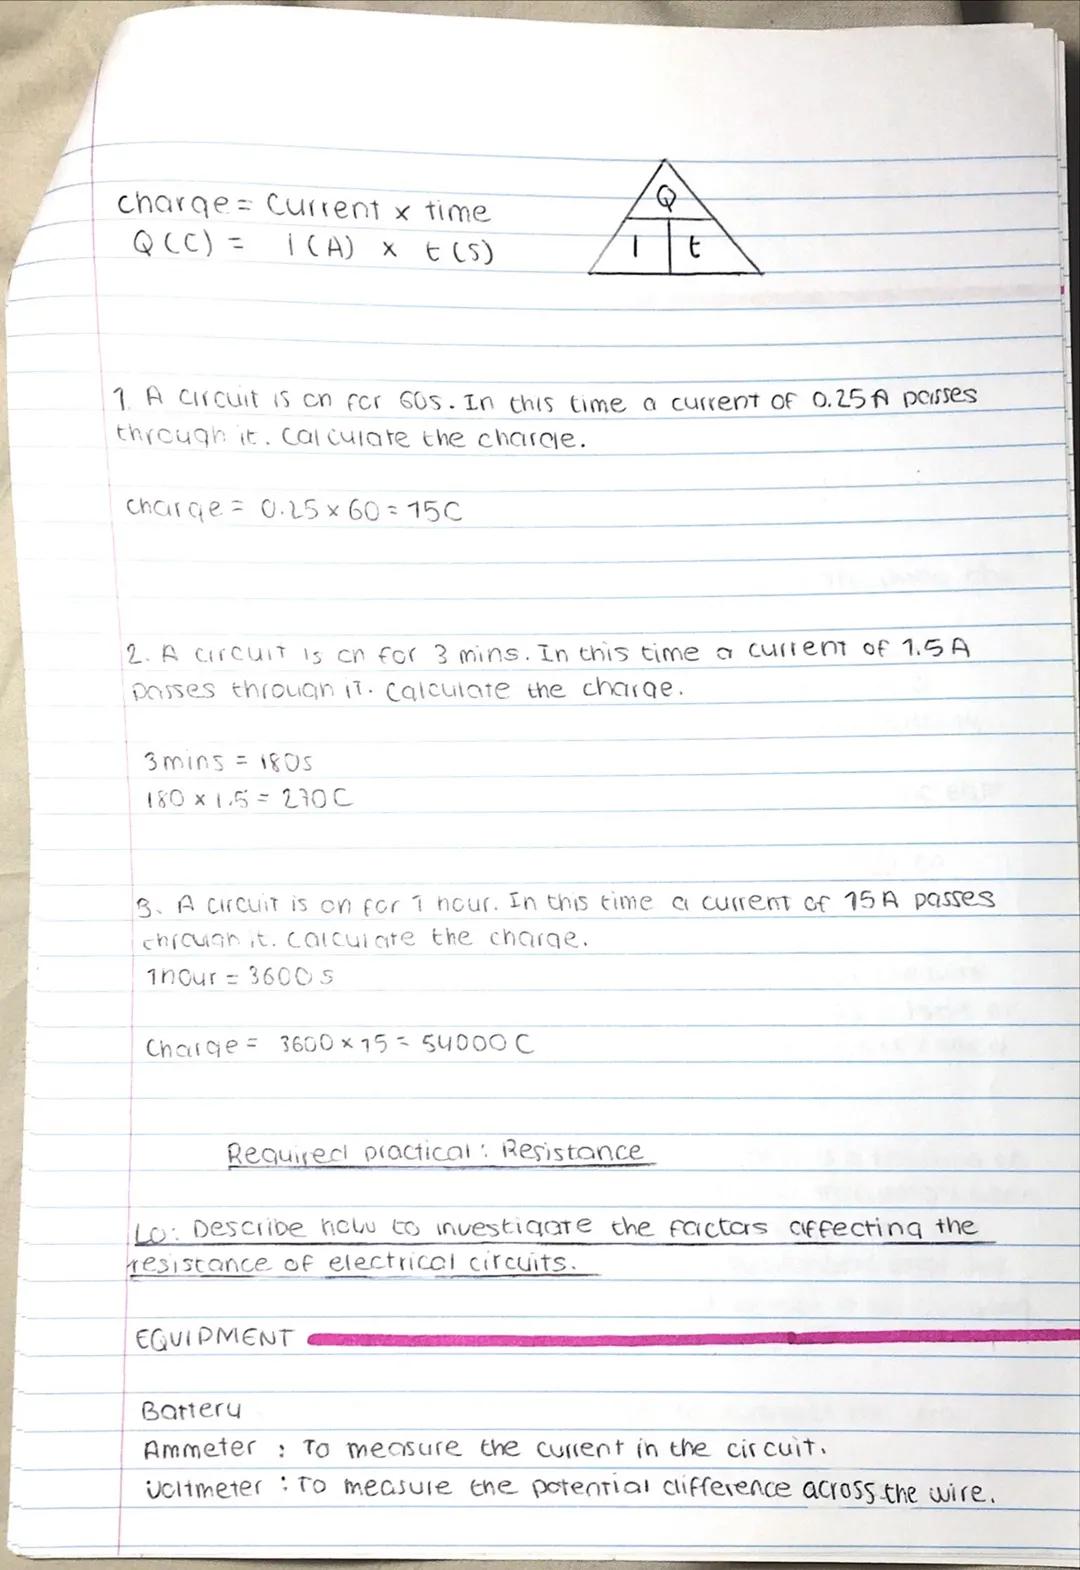 charge = current x time
Q (C) = I (A) x t (s)
Q
I t
1. A circuit is on for 60s. In this time a current of 0.25A passes
through it. Calculate the charge.
charge = 0.25 x 60 = 15C
2. A circuit is on for 3 mins. In this time a current of 1.5A
passes through it. Calculate the charge.
3mins = 180s
180 x 1.5 = 270C
3. A circuit is on for 1 hour. In this time a current of 15A passes
through it. Calculate the charge.
1hour = 3600s
Charge = 3600 x 15 = 54000C
Required practical : Resistance
Lo: Describe how to investigate the factors affecting the
resistance of electrical circuits.
EQUIPMENT
Battery
Ammeter : To measure the current in the circuit.
Voltmeter : To measure the potential difference across the wire.